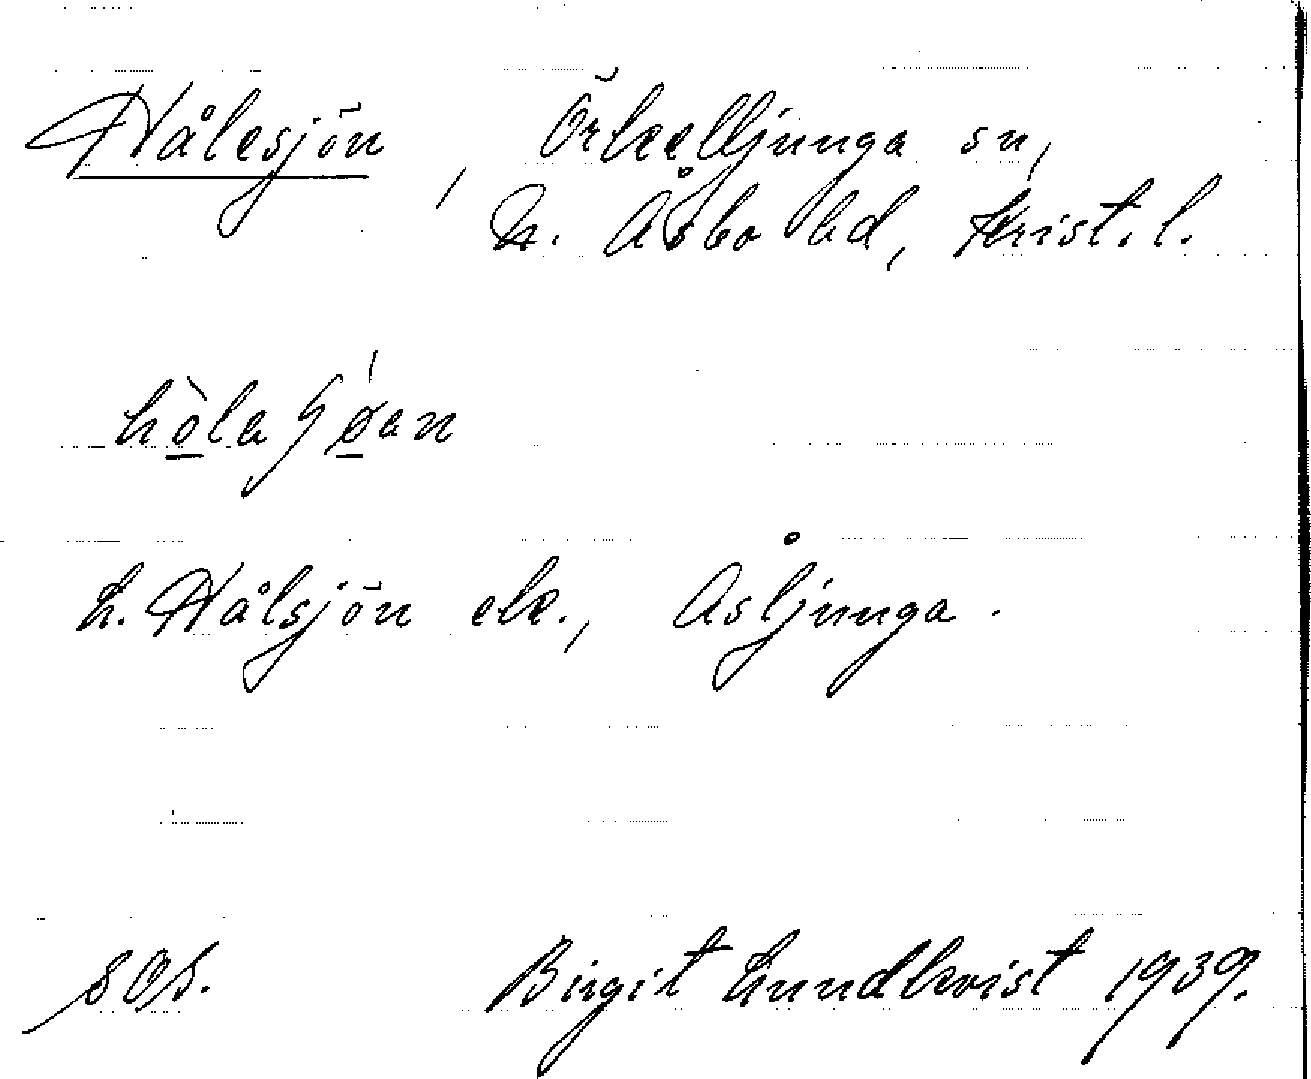 Hålesjön, Örkelljunga sn,
N. Åsbo hd, Krist. l.
hòlaʃǿan
L. Hålsjön ek., Åsljunga.
sOs. Birgit Lundkvist 1939.